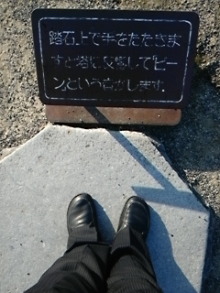 踏石上で手をたたきま
すと塔に反響してピー
ンという音がします。